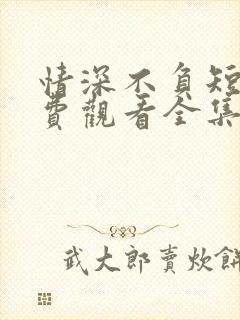 情深不負短
費觀看全集
武大郎賣炊餅